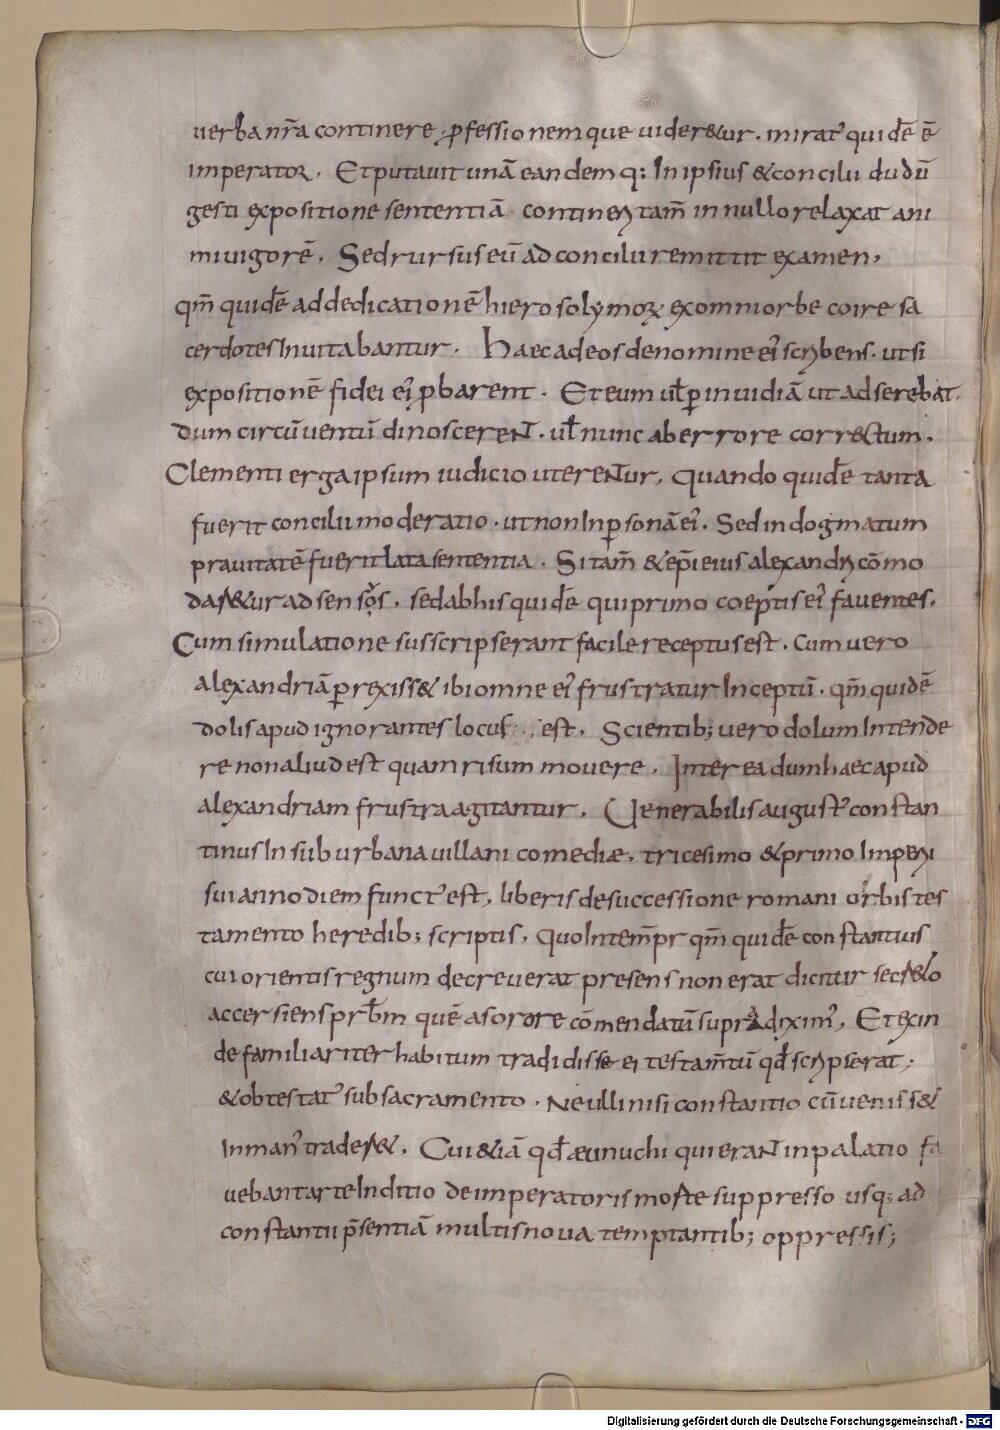 uerba nr̄a continere, ꝓfessionemque uider&ur. miratꝰ quidē ē
imperator. Et putauit unā eandemq: In ipsius & concilii dudū
gesti expositione sententiā contineri tam̄ in nullo relaxat ani
mi uigorē. Sed rursus eū ad concilii remittit examen.
qm̄ quidē ad dedicationē hierosolymoꝝ ex omni orbe coire sa
cerdotes Inuitabantur. Haec ad eos de nomine eiꝰ scribens. ut si
expositionē fidei eiꝰ ꝓbarent. Et eum ul̄ ꝑ inuidiā ut adserebat.
dum circūuentū dinoscerent. ul̄ nunc ab errore correctum.
Clementi erga ipsum iudicio uterentur, Quando quidē tanta
fuerit concilii moderatio. ut non In ꝑsonā eiꝰ. Sed in dogmatum
prauitatē fuerit lata sententia. Si tam̄ & ep̄i eius alexandri cōmo
dar&ur adsensꝰ, sed ab his quidē qui primo coeptis eiꝰ fauentes.
Cum simulatione susscripserant facile receptus est. Cum uero
alexandriā ꝑrexiss& ibi omne eiꝰ frustratur Inceptū. qm̄ quidē
dolis apud ignorantes locus est, Scientib; uero dolum Intende
re non aliud est quam risum mouere. Interea dum haec apud
alexandriam frustra agitantur, Uenerabilis augustꝰ constan
tinus In suburbana uilla nicomediæ, tricesimo & primo Imperii
sui anno diem functꝰ est, liberis de successione romani orbis tes
tamento heredib; scriptis, Quo Intemp̄r qm̄ quidē constantius
cui orientis regnum decreuerat presens non erat dicitur secr&o
accersiens pr̄bm quē a sorore cōmendatū supra diximꝰ, Et exin
de familiariter habitum tradidisse ei testam̄tū qd̄ scripserat,
& obtestatꝰ sub sacramento. Ne ulli nisi constantio cū ueniss&
In manꝰ trader&. Cui &iā qd̄ æunuchi qui erant in palatio fa
uebant arte Inditio de imperatoris morte suppresso usq: ad
constantii p̄sentiā multis noua temptantib; oppressis;
Digitalisierung gefördert durch die Deutsche Forschungsgemeinschaft - DFG